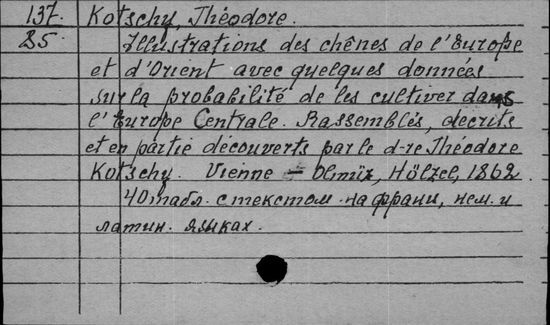 137. Kotschy, Théodore.
25. Illustrations des chênes de l'Europe
et d'Orient avec quelques données
sur la probabilité de les cultiver dans
l'Europe Centrale. Rassemblés, décrits
et en partie découverts par le d-re Théodore
Kotschy. Vienne – Olmüz, Hölzel, 1862.
40 табл. с текстом на франц., нем. и
латин. языках.